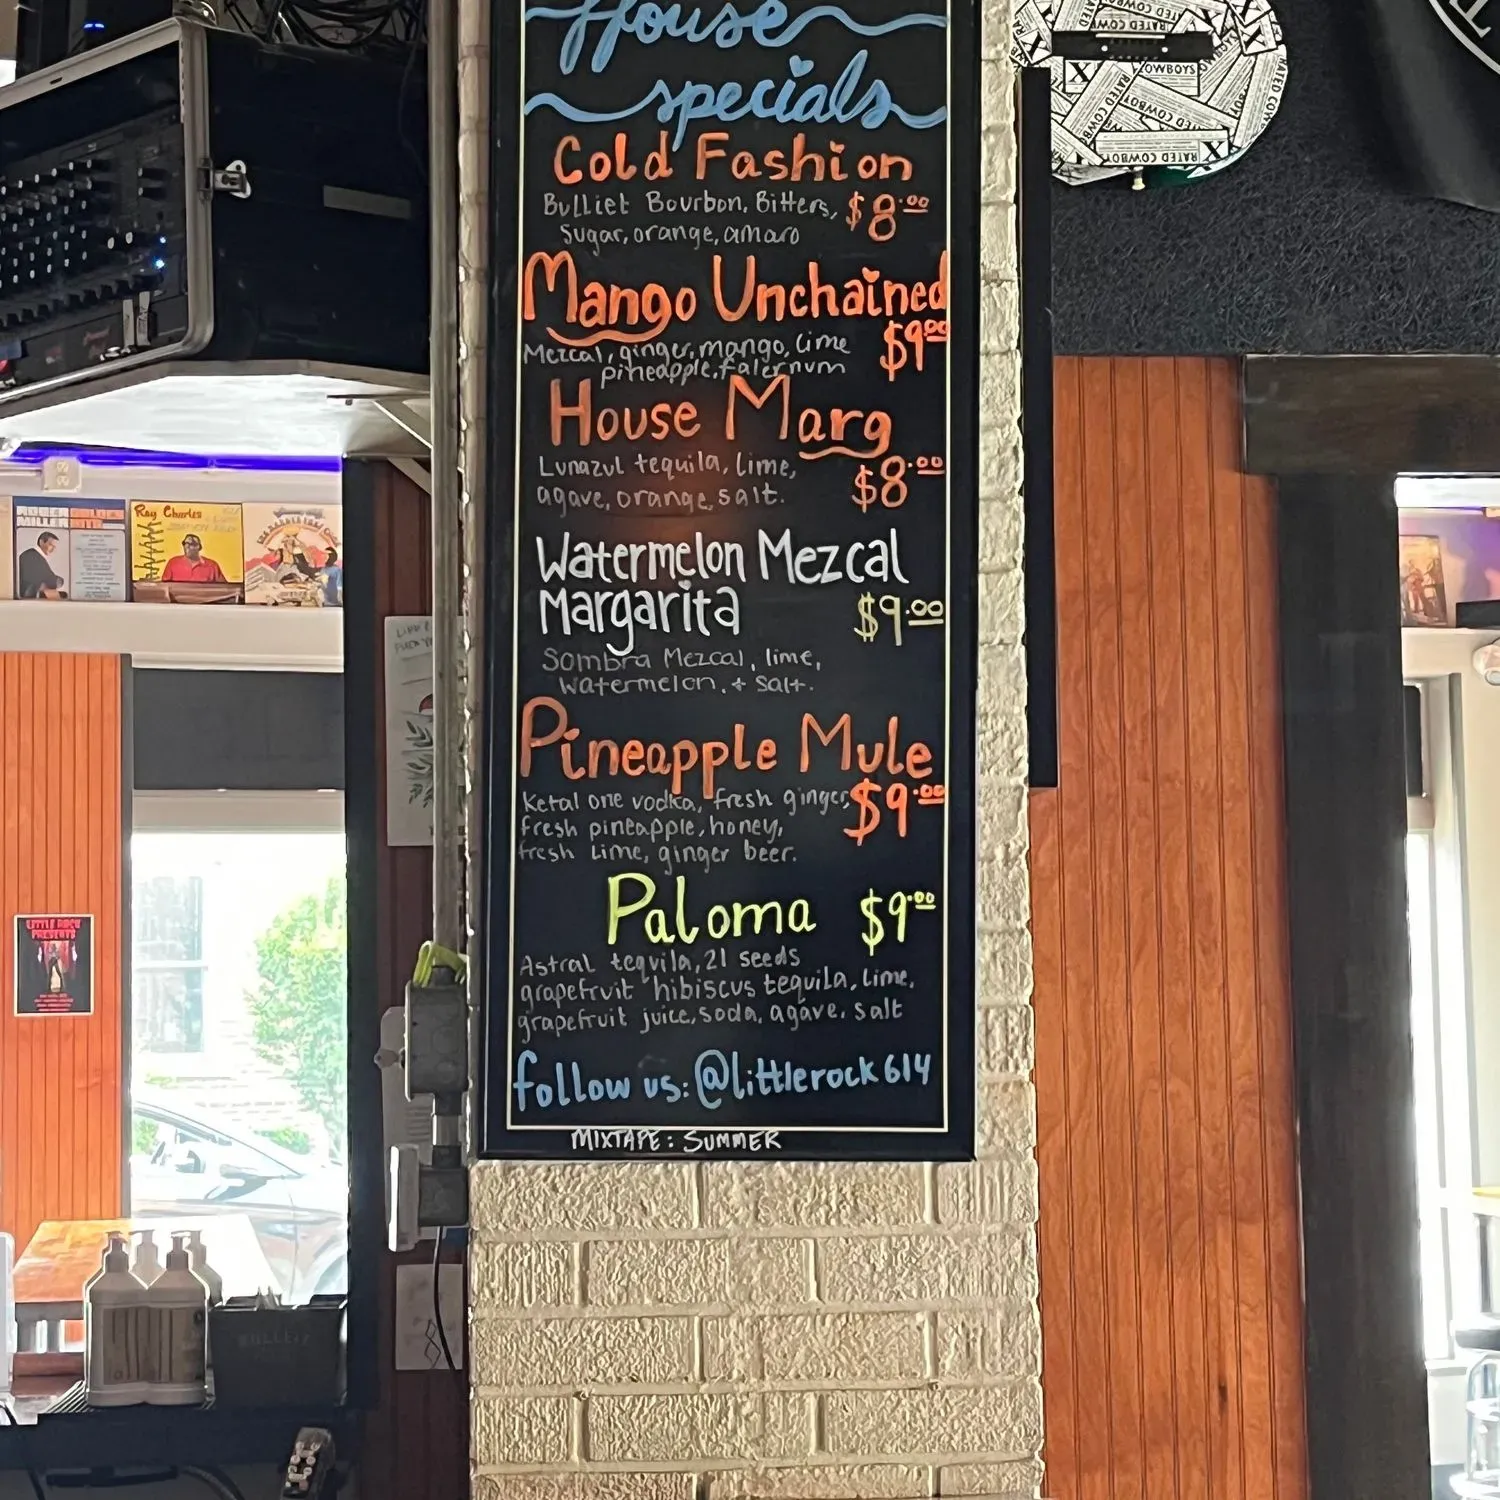 House
specials
Cold Fashion
Bulliet Bourbon, Bitters, $8.00
Sugar, orange, amaro
Mango Unchained
$9.00
Mezcal, ginger, mango, lime
pineapple, falernum
House Marg
Lunazul tequila, lime,
agave, orange, salt. $8.00
Watermelon Mezcal
Margarita $9.00
Sombra Mezcal, lime,
watermelon, + salt.
Pineapple Mule
Ketal one vodka, fresh ginger, $9.00
fresh pineapple, honey,
fresh lime, ginger beer.
Paloma $9.00
Astral tequila, 21 seeds
grapefruit hibiscus tequila, lime,
grapefruit juice, soda, agave, salt
follow us: @littlerock614
MIXTAPE: SUMMER
Ray Charles
ROGER
MILLER GOLDEN
HITS
LITTLE ROCK
PRESENTS
BULLEIT
X
RATED COWBOY
RATED COWBOY
X